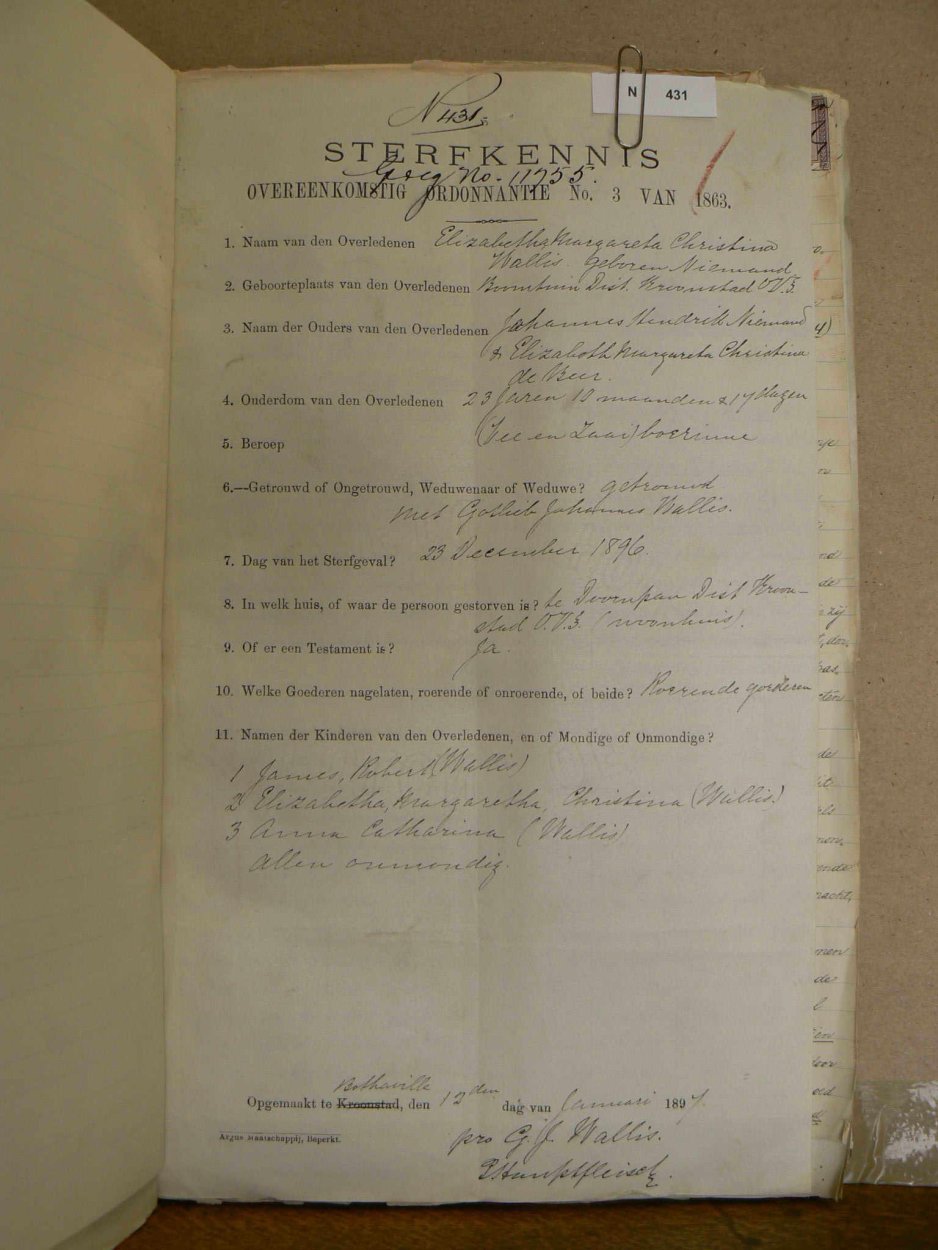 N 431
N 431.
STERFKENNIS
Gereg No. 11755.
OVEREENKOMSTIG ORDONNANTIE No. 3 VAN 1863.
1. Naam van den Overledenen Elizabetha Margareta Christina
Wallis geboren Niemand
2. Geboorteplaats van den Overledenen Boomtuin Dist. Kroonstad O.V.S.
3. Naam der Ouders van den Overledenen Johannes Hendrik Niemand
& Elizabeth Margareta Christina
de Beer.
4. Ouderdom van den Overledenen 23 Jaren 10 maanden & 17 dagen
5. Beroep (Vee en Zaai) boerinne
6.—Getrouwd of Ongetrouwd, Weduwenaar of Weduwe? getrouwd
met Gotlieb Johannes Wallis.
7. Dag van het Sterfgeval? 23 December 1896.
8. In welk huis, of waar de persoon gestorven is? te Doornpan Dist Kroon-
stad O.V.S. (woonhuis).
9. Of er een Testament is? Ja.
10. Welke Goederen nagelaten, roerende of onroerende, of beide? Roerende goederen
11. Namen der Kinderen van den Overledenen, en of Mondige of Onmondige?
1 James, Robert (Wallis)
2 Elizabetha, Margaretha, Christina (Wallis)
3 Anna Catharina (Wallis)
allen onmondig.
Bothaville
Opgemaakt te Kroonstad, den 12den dag van Januari 1897.
pro G. J. Wallis.
Hauptfleisch
Argus Maatschappij, Beperkt.